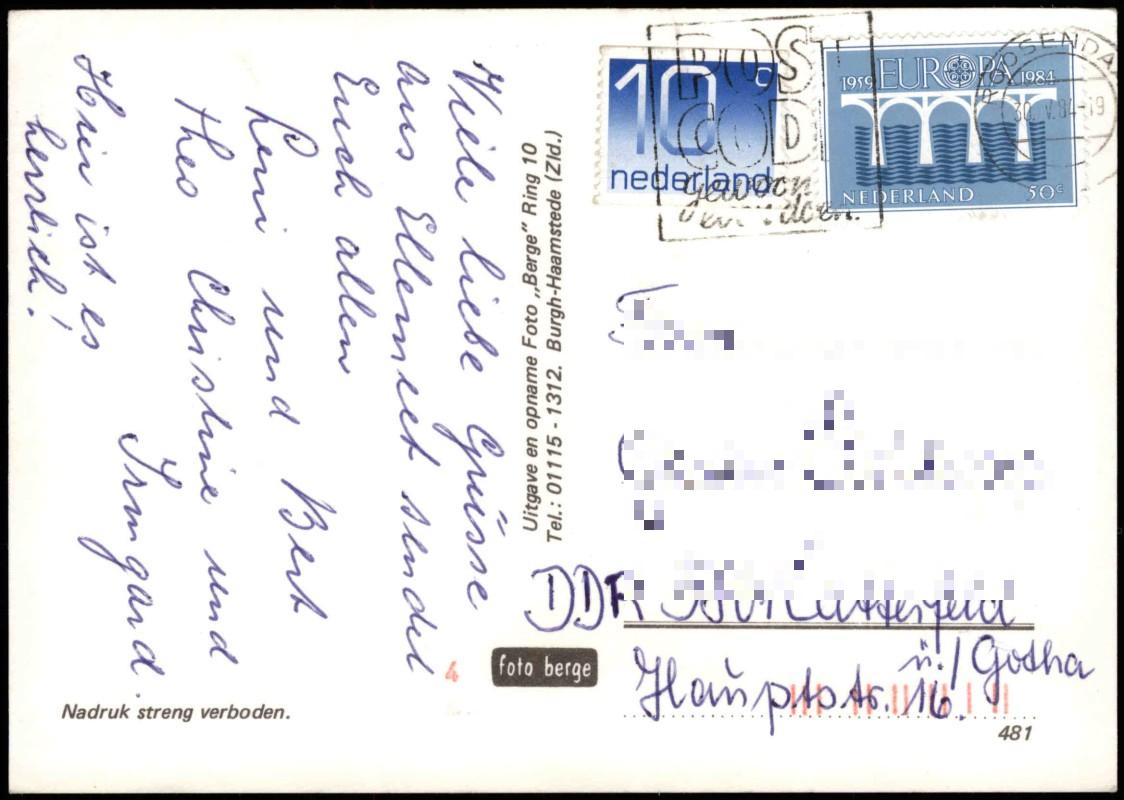 Viele liebe Grüsse
aus Ellemeet sendet
Euch allen
Leni und Bert
Theo Christine und
Irmgard.
Hier ist es
herrlich!
Nadruk streng verboden.
Uitgave en opname Foto „Berge” Ring 10
Tel.: 01115 - 1312. Burgh-Haamstede (Zld.)
4
foto berge
10 c
nederland
POST
CODE
gewoon
even doen.
1959 EUROPA 1984
CEPT
NEDERLAND 50c
ROOSENDAAL
30.V.84-19
DDR
ü./Gotha
Hauptstr. 16.
481